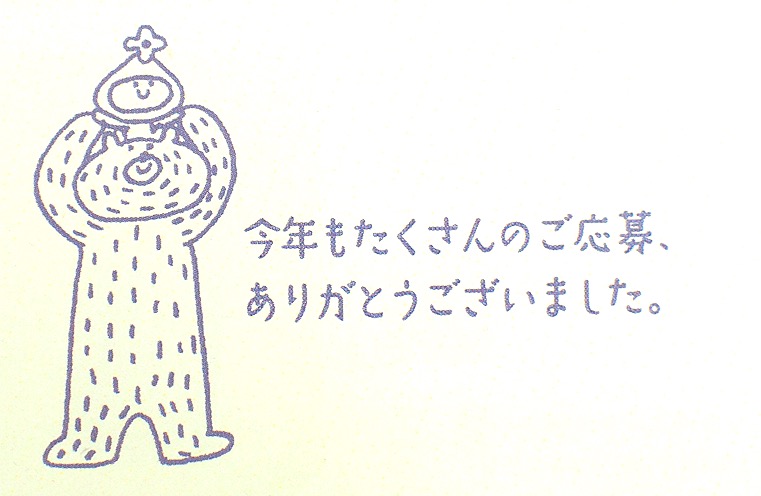 今年もたくさんのご応募、
ありがとうございました。